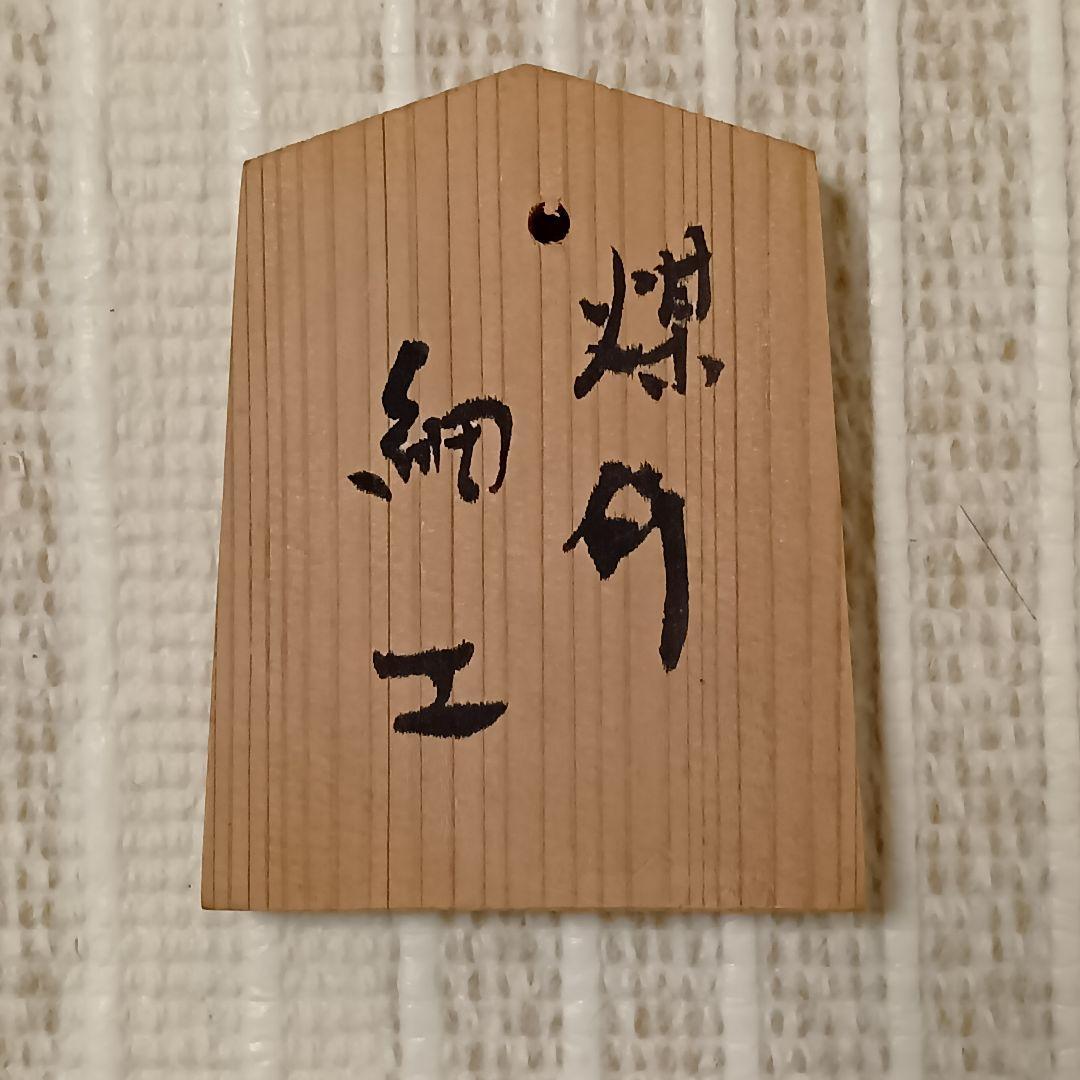 煤竹
細工